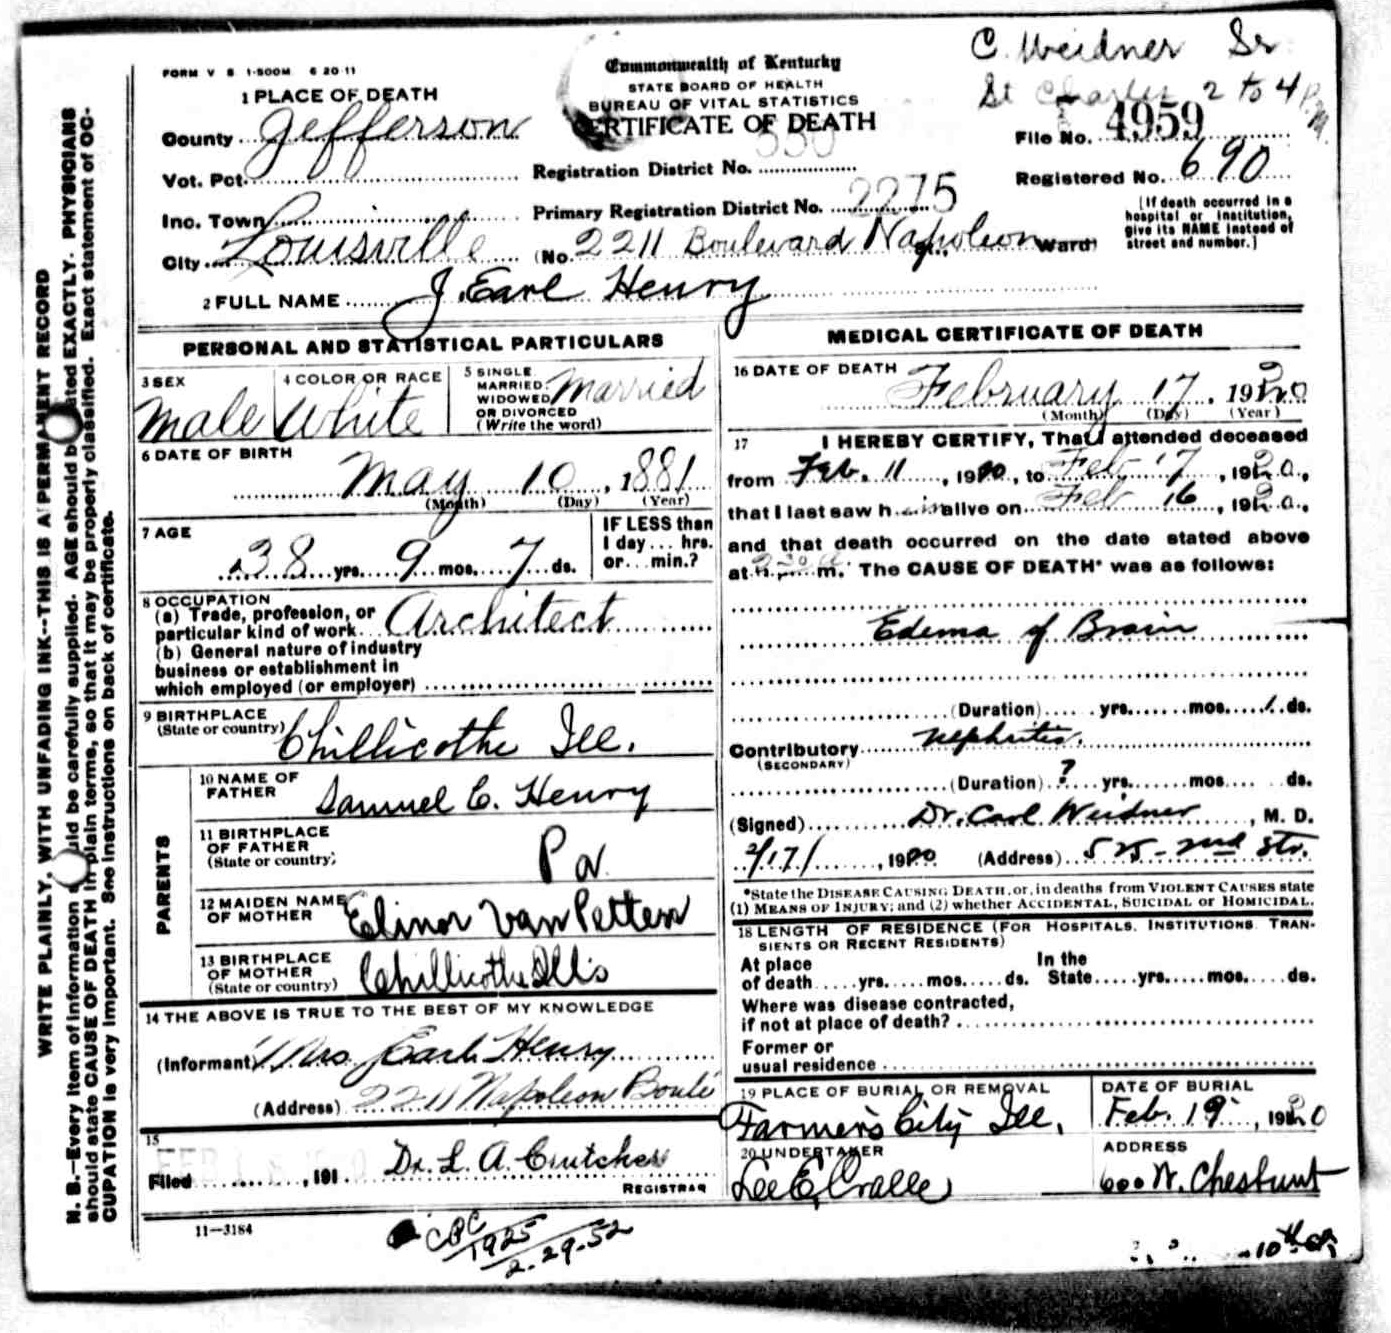 C. Weidner Sr
St Charles 2 to 4 P.M.
FORM V S 1-500M 6 20 11
Commonwealth of Kentucky
STATE BOARD OF HEALTH
BUREAU OF VITAL STATISTICS
CERTIFICATE OF DEATH
1 PLACE OF DEATH
County Jefferson
Vot. Pct.
Inc. Town
City Louisville
Registration District No. 550
Primary Registration District No. 2275
(No. 2211 Boulevard Napoleon Ward)
File No. 4959
Registered No. 690
[If death occurred in a
hospital or institution,
give its NAME instead of
street and number.]
2 FULL NAME J. Earl Henry
PERSONAL AND STATISTICAL PARTICULARS
3 SEX
Male
4 COLOR OR RACE
White
5 SINGLE
MARRIED.
WIDOWED
OR DIVORCED
(Write the word)
Married
6 DATE OF BIRTH
May 10, 1881
(Month) (Day) (Year)
7 AGE
38 yrs. 9 mos. 7 ds.
IF LESS than
1 day ... hrs.
or ... min.?
8 OCCUPATION
(a) Trade, profession, or
particular kind of work. Architect
(b) General nature of industry
business or establishment in
which employed (or employer)
9 BIRTHPLACE
(State or country) Chillicothe Ill.
PARENTS
10 NAME OF
FATHER Samuel C. Henry
11 BIRTHPLACE
OF FATHER
(State or country) Pa
12 MAIDEN NAME
OF MOTHER Elinor Van Petten
13 BIRTHPLACE
OF MOTHER
(State or country) Chillicothe Ills
14 THE ABOVE IS TRUE TO THE BEST OF MY KNOWLEDGE
(Informant) Mrs Earl Henry
(Address) 2211 Napoleon Boule
15
Filed FEB 18, 191 Dr. L. A. Crutcher
REGISTRAR
11-3184
MEDICAL CERTIFICATE OF DEATH
16 DATE OF DEATH
February 17, 1920
(Month) (Day) (Year)
17 I HEREBY CERTIFY, That I attended deceased
from Feb. 11, 1920, to Feb 17, 1920,
that I last saw him alive on Feb 16, 1920,
and that death occurred on the date stated above
at m. The CAUSE OF DEATH* was as follows:
Edema of Brain
(Duration) yrs. mos. 1 ds.
Contributory nephritis.
(SECONDARY)
(Duration) ? yrs. mos. ds.
(Signed) Dr. Carl Weidner, M. D.
2/17/, 1920 (Address) 525 - 2nd Str.
*State the DISEASE CAUSING DEATH, or, in deaths from VIOLENT CAUSES state
(1) MEANS OF INJURY; and (2) whether ACCIDENTAL, SUICIDAL or HOMICIDAL.
18 LENGTH OF RESIDENCE (FOR HOSPITALS, INSTITUTIONS, TRAN-
SIENTS OR RECENT RESIDENTS)
At place
of death yrs. mos. ds.
In the
State yrs. mos. ds.
Where was disease contracted,
if not at place of death?
Former or
usual residence
19 PLACE OF BURIAL OR REMOVAL
Farmer's City Ill.
DATE OF BURIAL
Feb. 19, 1920
20 UNDERTAKER
Lee E. Cralle
ADDRESS
600 W. Chestnut
CBC
1925
2-29-52
10th
N. B.--Every item of information should be carefully supplied. AGE should be stated EXACTLY. PHYSICIANS
should state CAUSE OF DEATH in plain terms, so that it may be properly classified. Exact statement of OC-
CUPATION is very important. See instructions on back of certificate.
WRITE PLAINLY, WITH UNFADING INK--THIS IS A PERMANENT RECORD